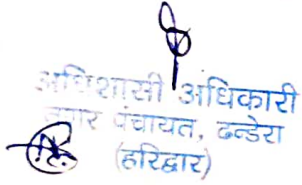 अधिशासी अधिकारी
नगर पंचायत, ढन्डेरा
(हरिद्वार)